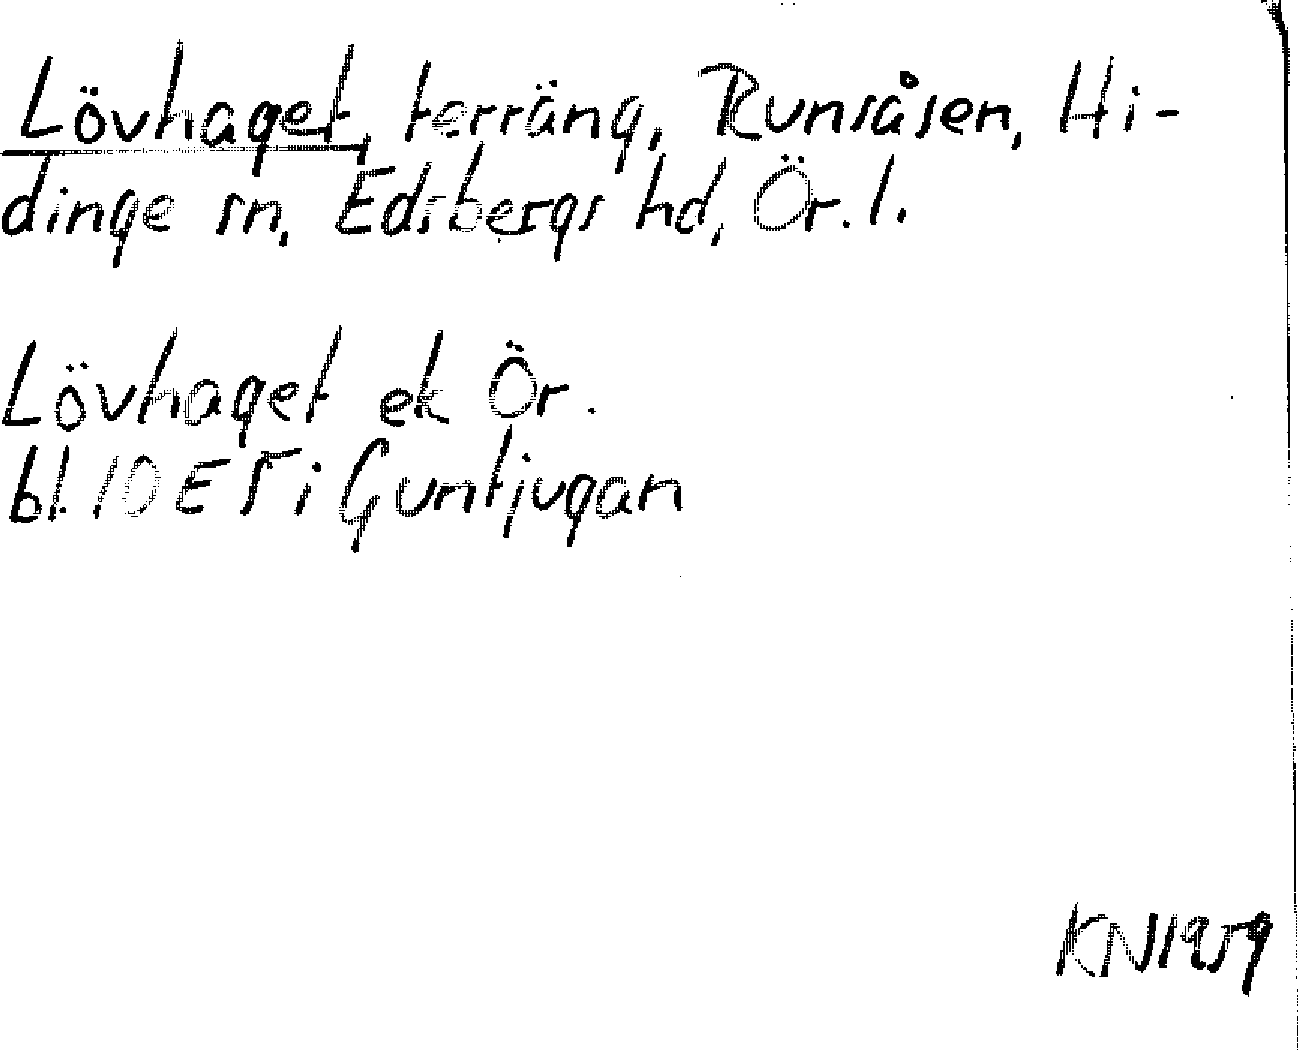 Lövhaget, terräng, Runsåsen, Hi-
dinge sn, Edsbergs hd, Ör. l.
Lövhaget ek Ör.
bl. 10 E 5 i Guntjugan
KN 1959